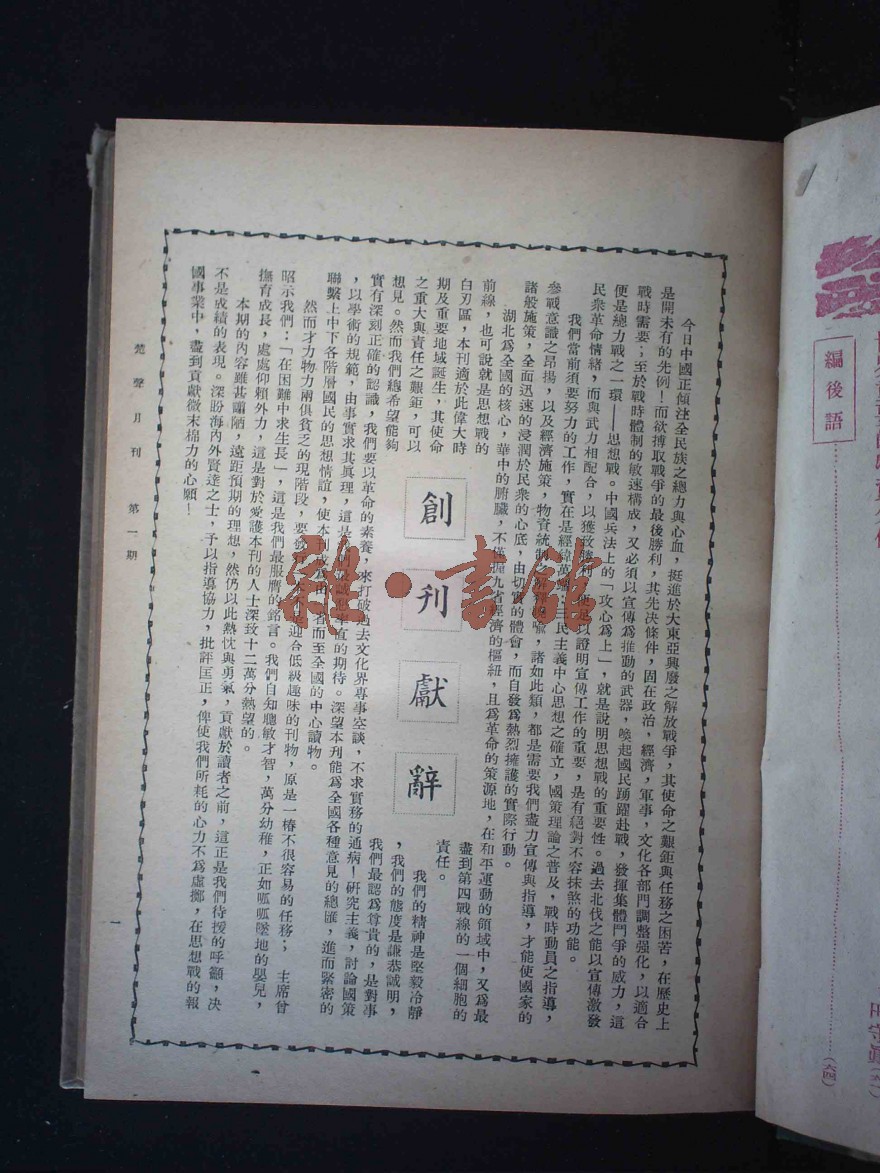 創刊獻辭
今日中國正傾注全民族之總力與心血，挺進於大東亞興廢之解放戰爭，其使命之艱鉅與任務之困苦，在歷史上
是開未有的先例！而欲搏取戰爭的最後勝利，其先決條件，固在政治，經濟，軍事，文化各部門調整强化，以適合
戰時需要；至於戰時體制的敏速構成，又必須以宣傳爲推動的武器，喚起國民踴躍赴戰，發揮集體鬥爭的威力，這
便是總力戰之一環——思想戰。中國兵法上的「攻心爲上」，就是說明思想戰的重要性。過去北伐之能以宣傳激發
民衆革命情緒，而與武力相配合，以獲致勝利，便足以證明宣傳工作的重要，是有絕對不容抹煞的功能。
我們當前須要努力的工作，實在是經緯萬端，三民主義中心思想之確立，國策理論之普及，戰時動員之指導，
參戰意識之昂揚，以及經濟施策，物資統制之解釋，諸如此類，都是需要我們盡力宣傳與指導，才能使國家的
諸般施策，全面迅速的浸潤於民衆的心底，由切實的體會，而自發爲熱烈擁護的實際行動。
湖北爲全國的核心，華中的腑臟，不僅握九省經濟的樞紐，且爲革命的策源地，在和平運動的領域中，又爲最
前線，也可說就是思想戰的
白刃區，本刊適於此偉大時
期及重要地域誕生，其使命
之重大與責任之艱鉅，可以
想見。然而我們總希望能夠
盡到第四戰線的一個細胞的
責任。
我們的精神是堅毅冷靜
，我們的態度是謙恭誠明，
我們最認爲尊貴的，是對事
實有深刻正確的認識，我們要以革命的素養，來打破過去文化界專事空談，不求實務的通病！研究主義，討論國策
，以學術的規範，由事實求其眞理，這是我們最誠懇率直的期待。深望本刋能爲全國各種意見的總匯，進而緊密的
聯繫上中下各階層國民的思想情誼，使本刊成爲由讀者而至全國的中心讀物。
然而才力物力兩俱貧乏的現階段，要發行一本不是迎合低級趣味的刊物，原是一樁不很容易的任務；　主席曾
昭示我們：「在困難中求生長」，這是我們最服膺的銘言。我們自知聰敏才智，萬分幼稚，正如呱呱墜地的嬰兒，
撫育成長，處處仰賴外力，這是對於愛護本刊的人士深致十二萬分熱望的。
本期的內容雖甚譾陋，遠距預期的理想，然仍以此熱忱與勇氣，貢獻於讀者之前，這正是我們待援的呼籲，决
不是成績的表現。深盼海內外賢達之士，予以指導協力，批評匡正，俾使我們所耗的心力不爲虛擲，在思想戰的報
國事業中，盡到貢獻微末棉力的心願！
楚聲月刊　第一期
一
編後語
(六四)
雜·書館